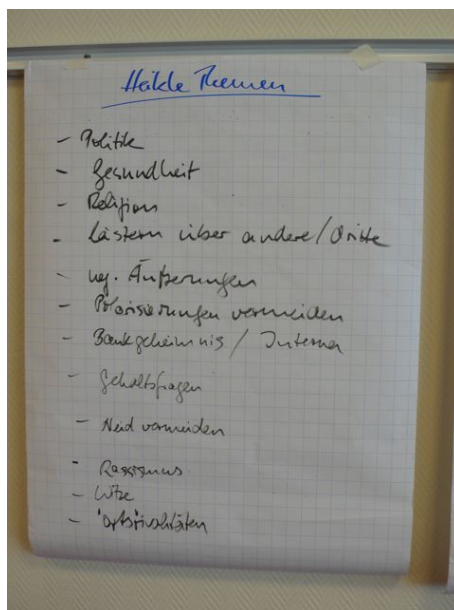 Heikle Themen
- Politik
- Gesundheit
- Religion
- Lästern über andere / Dritte
- neg. Äußerungen
- Polarisierungen vermeiden
- Bankgeheimnis / Interna
- Gehaltsfragen
- Neid vermeiden
- Rassismus
- Witze